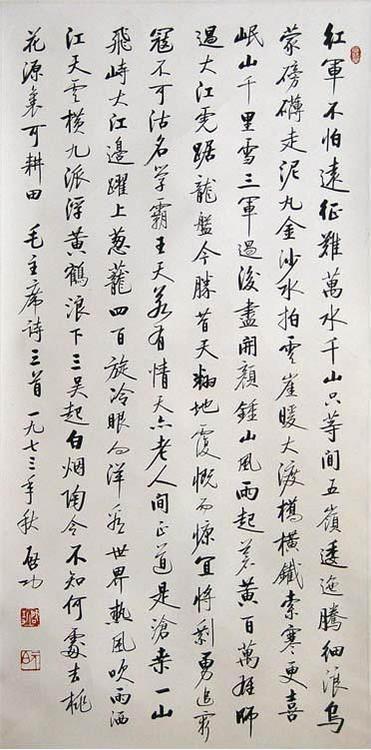 紅軍不怕遠征難萬水千山只等間五嶺逶迤騰細浪烏
蒙磅礴走泥丸金沙水拍雲崖暖大渡橋橫鐵索寒更喜
岷山千里雪三軍過後盡開顏鍾山風雨起蒼黃百萬雄師
過大江虎踞龍盤今勝昔天翻地覆慨而慷宜將剩勇追窮
寇不可沽名学霸王天若有情天亦老人間正道是滄桑一山
飛峙大江邊躍上蔥蘢四百旋冷眼向洋看世界熱風吹雨洒
江天雲橫九派浮黃鶴浪下三吳起白烟陶令不知何處去桃
花源裏可耕田 毛主席詩三首 一九七三年秋 啟功